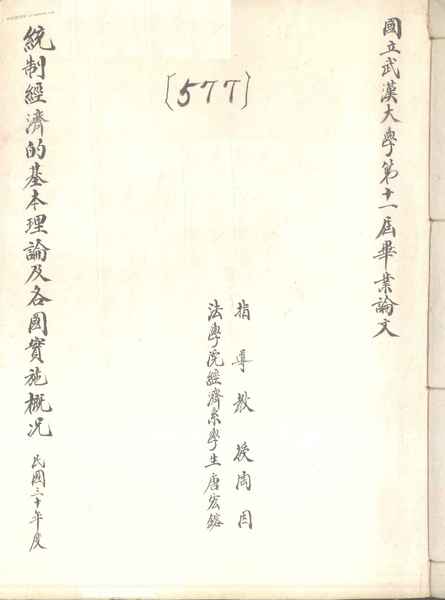 國立武漢大學第十一屆畢業論文
[577]
指導教授陶因
法學院經濟系學生唐宏鎔
統制經濟的基本理論及各國實施概况
民國三十年度